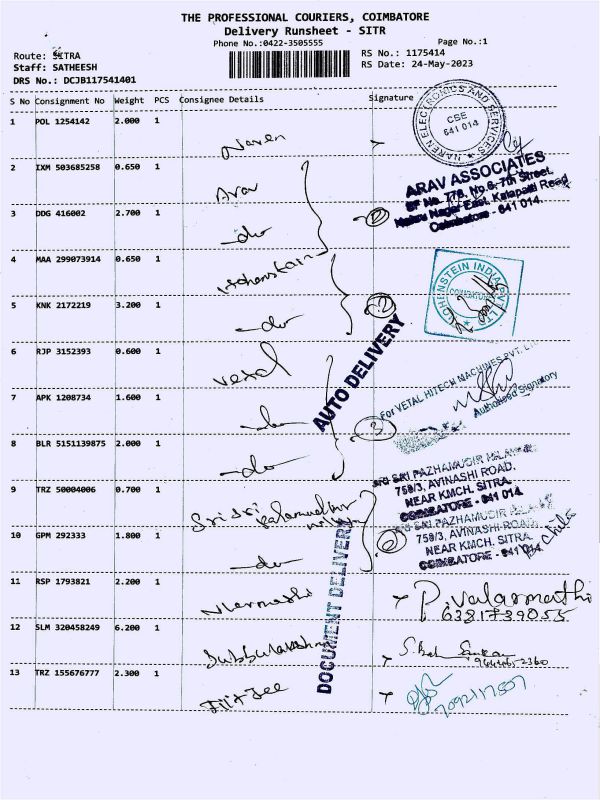 THE PROFESSIONAL COURIERS, COIMBATORE
Delivery Runsheet - SITR
Phone No.:0422-3505555 Page No.:1
Route: SITRA RS No.: 1175414
Staff: SATHEESH RS Date: 24-May-2023
DRS No.: DCJB117541401
S No Consignment No Weight PCS Consignee Details Signature
1 POL 1254142 2.000 1 Naren
NAREN ELECTRONICS AND SERVICES
CBE
641 014
2 IXM 503685258 0.650 1 Arav
ARAV ASSOCIATES
SF No. 778, No.6, 7th Street,
Nehru Nagar East, Kalapatti Road
Coimbatore - 641 014.
3 DDG 416002 2.700 1 -do- 2
4 MAA 299073914 0.650 1 Hohenstein
HOHENSTEIN INDIA PVT LTD
COIMBATORE
5 KNK 2172219 3.200 1 -do- 2
AUTO DELIVERY
6 RJP 3152393 0.600 1 Vetal
For VETAL HITECH MACHINES PVT. LTD
Authorised Signatory
7 APK 1208734 1.600 1 -do- 3
8 BLR 5151139875 2.000 1 -do-
9 TRZ 50004006 0.700 1 Sri Sri
SRI SRI PAZHAMUDIR NILAYAM
759/3, AVINASHI ROAD,
NEAR KMCH, SITRA,
COIMBATORE - 641 014.
10 GPM 292333 1.800 1 -do- 2
SRI SRI PAZHAMUDIR NILAYAM
759/3, AVINASHI ROAD,
NEAR KMCH, SITRA,
COIMBATORE - 641 014.
DOCUMENT DELIVERY
11 RSP 1793821 2.200 1 P. Valarmathi
6381739055
12 SLM 320458249 6.200 1 Subbulakshmi
13 TRZ 155676777 2.300 1 FIITJEE
7092117507